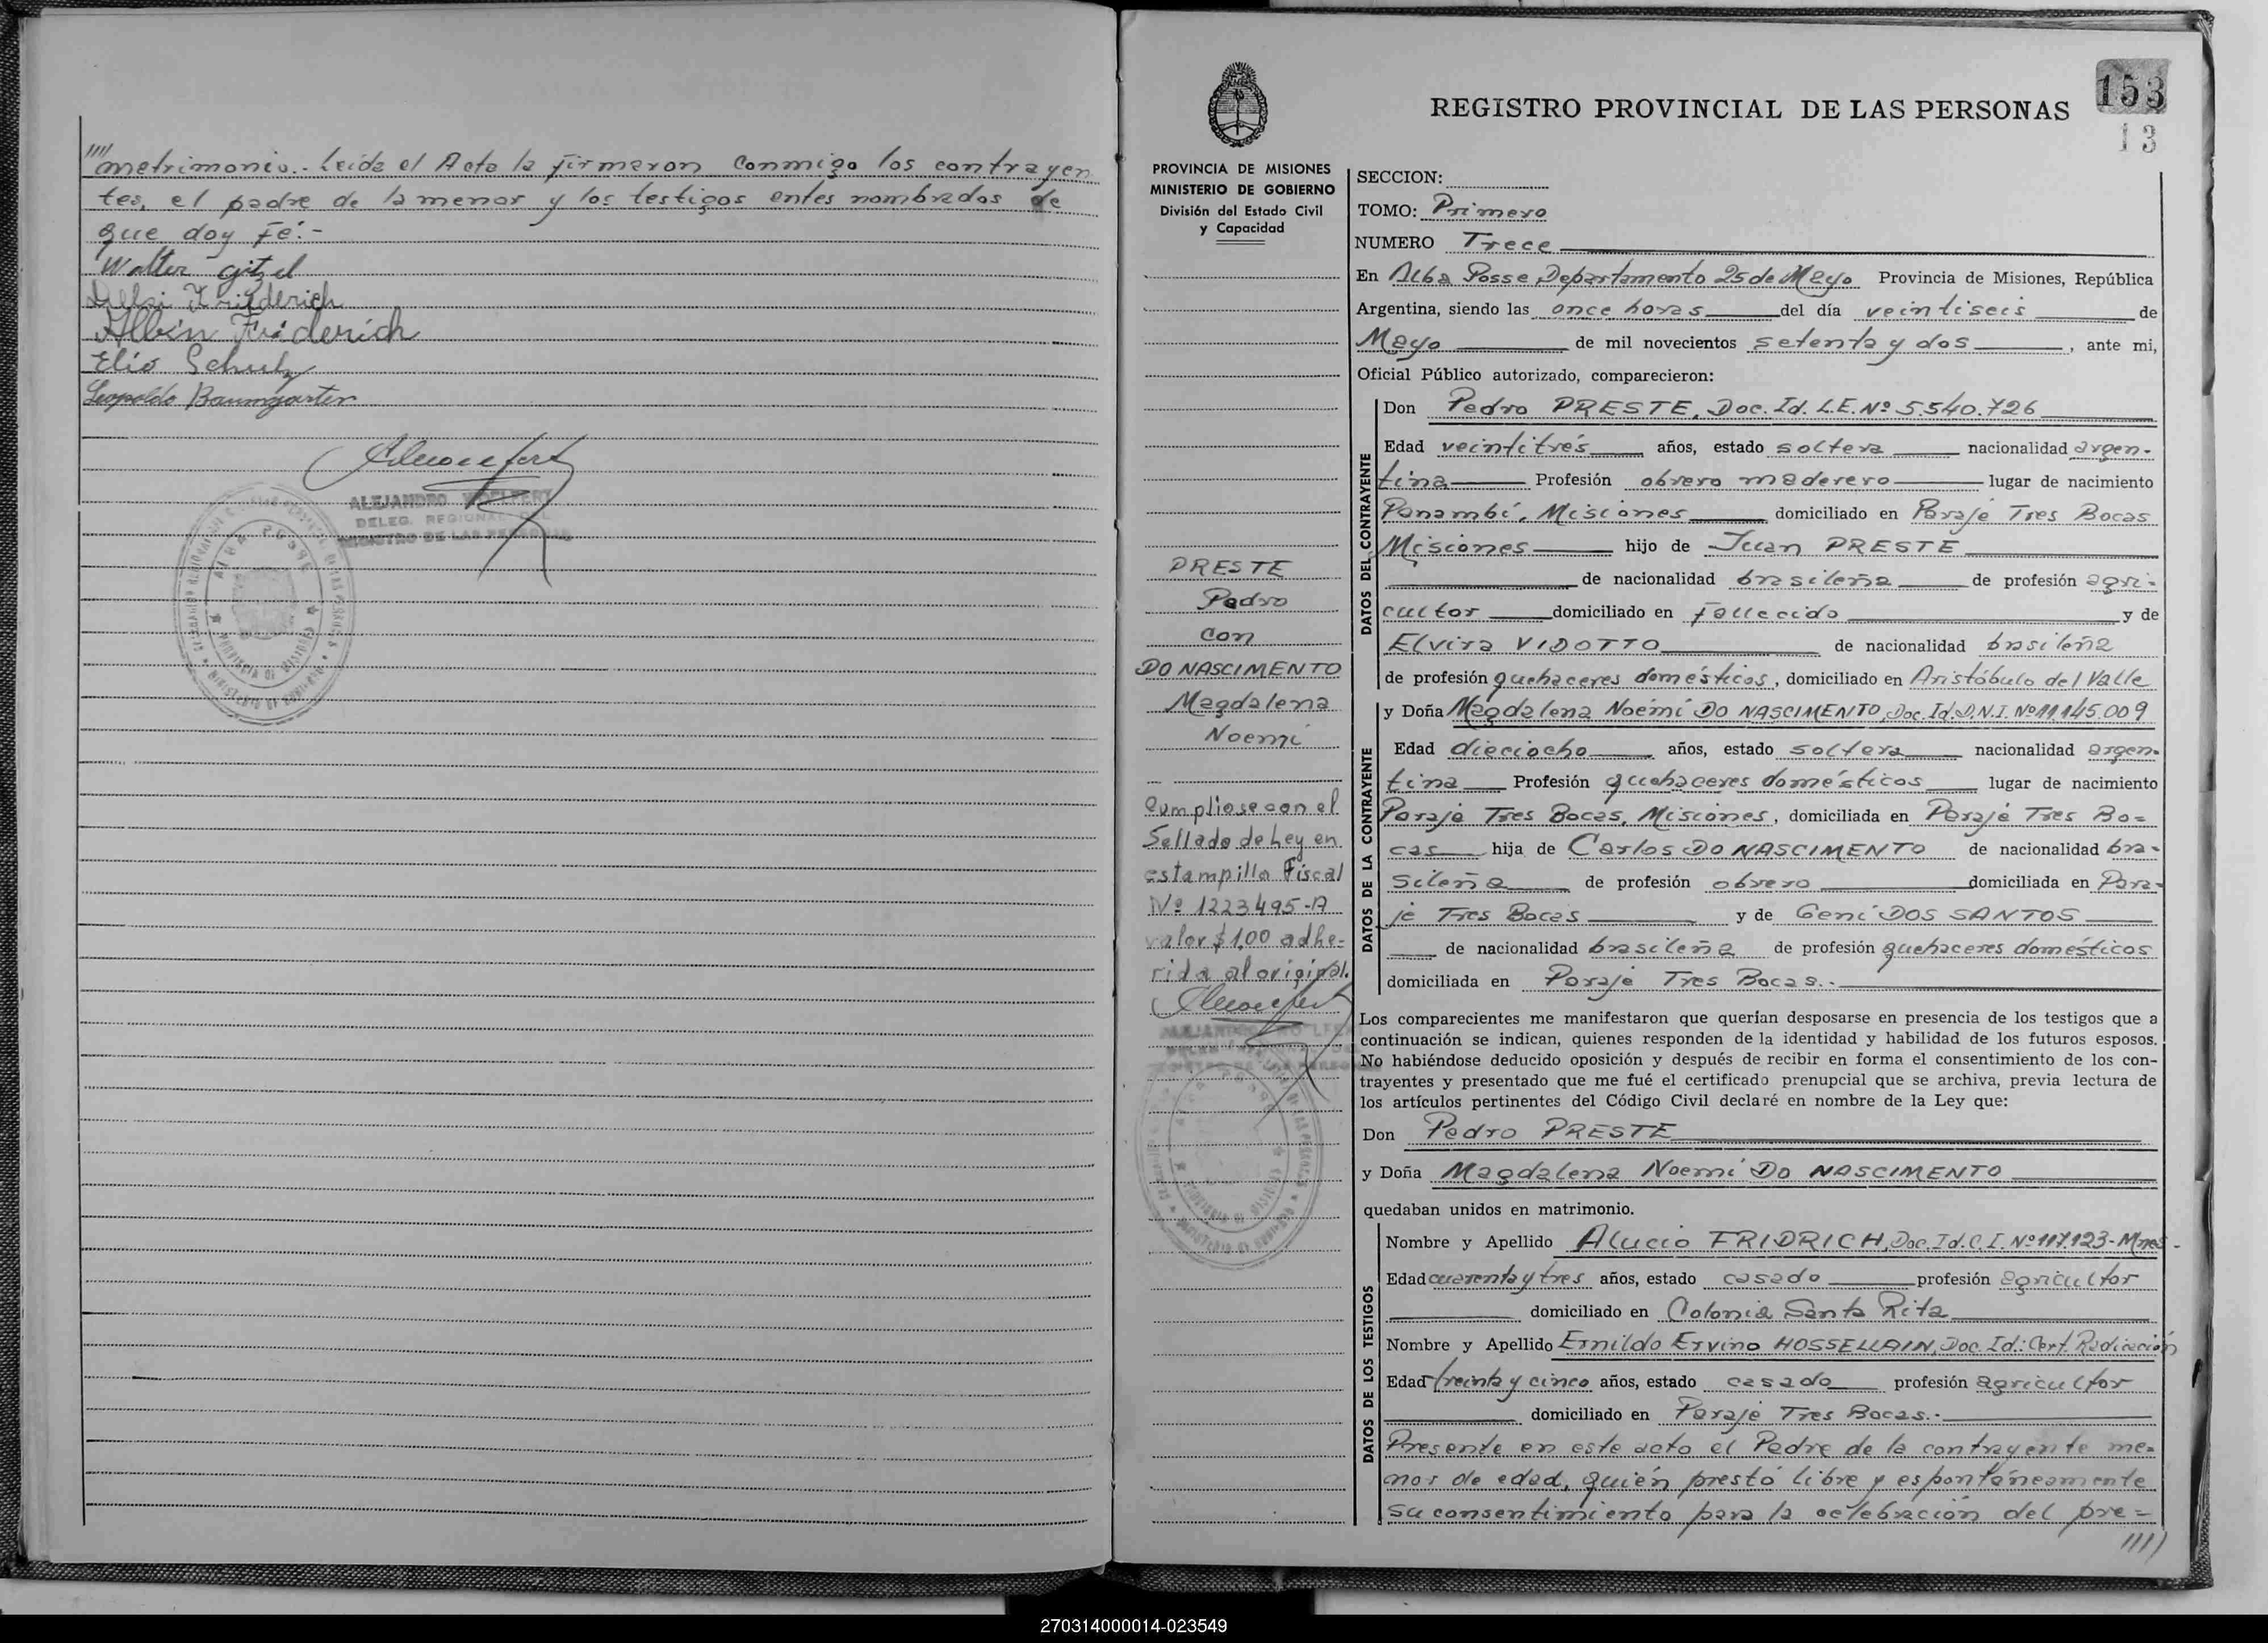 //// matrimonio.- Leida el Acta la firmaron conmigo los contrayen
tes, el padre de la menor y los testigos antes nombrados de
que doy Fé.-
Walter Gitzel
Friederich
Albin Friederich
Elio Schulz
Leopoldo Baumgarten
ALEJANDRO WOELFERT
DELEG. REGIONAL DEL
REGISTRO DE LAS PERSONAS
153
13
REGISTRO PROVINCIAL DE LAS PERSONAS
PROVINCIA DE MISIONES
MINISTERIO DE GOBIERNO
División del Estado Civil
y Capacidad
PRESTE
Pedro
con
DO NASCIMENTO
Magdalena
Noemí
Cumpliose con el
Sellado de Ley en
estampilla Fiscal
Nº 1223495-A
valor $1,00 adhe=
rida al original.
ALEJANDRO WOELFERT
SECCION:
TOMO: Primero
NUMERO Trece
En Alba Posse, Departamento 25 de Mayo Provincia de Misiones, República
Argentina, siendo las once horas del día veintiseis de
Mayo de mil novecientos setenta y dos, ante mi,
Oficial Público autorizado, comparecieron:
DATOS DEL CONTRAYENTE
Don Pedro PRESTE, Doc. Id. L.E. Nº 5.540.726
Edad veintitrés años, estado soltero nacionalidad argen-
tina Profesión obrero maderero lugar de nacimiento
Panambí, Misiones domiciliado en Paraje Tres Bocas
Misiones hijo de Juan PRESTE
de nacionalidad brasileña de profesión agri-
cultor domiciliado en Fallecido y de
Elvira VIDOTTO de nacionalidad brasileña
de profesión quehaceres domésticos, domiciliado en Aristóbulo del Valle
DATOS DE LA CONTRAYENTE
y Doña Magdalena Noemí DO NASCIMENTO, Doc. Id. D.N.I. Nº 11.145.009
Edad dieciocho años, estado soltera nacionalidad argen-
tina Profesión quehaceres domésticos lugar de nacimiento
Paraje Tres Bocas, Misiones, domiciliada en Paraje Tres Bo=
cas hija de Carlos DO NASCIMENTO de nacionalidad bra-
sileña de profesión obrero domiciliada en Para-
je Tres Bocas y de Gení DOS SANTOS
de nacionalidad brasileña de profesión quehaceres domésticos
domiciliada en Paraje Tres Bocas.-
Los comparecientes me manifestaron que querían desposarse en presencia de los testigos que a
continuación se indican, quienes responden de la identidad y habilidad de los futuros esposos.
No habiéndose deducido oposición y después de recibir en forma el consentimiento de los con-
trayentes y presentado que me fué el certificado prenupcial que se archiva, previa lectura de
los artículos pertinentes del Código Civil declaré en nombre de la Ley que:
Don Pedro PRESTE
y Doña Magdalena Noemí DO NASCIMENTO
quedaban unidos en matrimonio.
DATOS DE LOS TESTIGOS
Nombre y Apellido Alucio FRIDRICH, Doc. Id. C.I. Nº 117.123-Mnes-
Edad cuarenta y tres años, estado casado profesión agricultor
domiciliado en Colonia Santa Rita
Nombre y Apellido Ernildo Ervino HOSSELLAIN, Doc. Id.: Cert. Radicación
Edad treinta y cinco años, estado casado profesión agricultor
domiciliado en Paraje Tres Bocas.-
Presente en este acto el Padre de la contrayente me=
nor de edad, quién prestó libre y espontáneamente
su consentimiento para la celebración del pre=
////
270314000014-023549